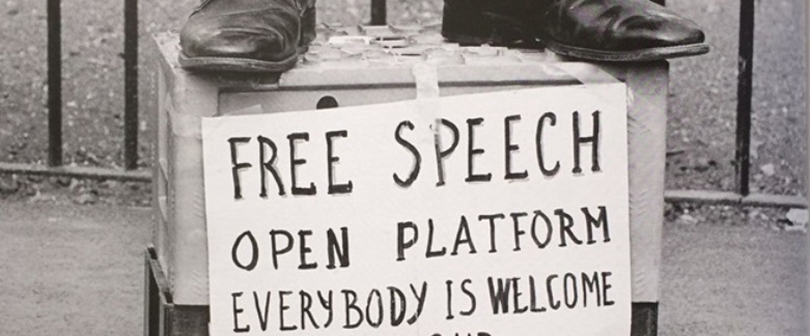 FREE SPEECH
OPEN PLATFORM
EVERYBODY IS WELCOME